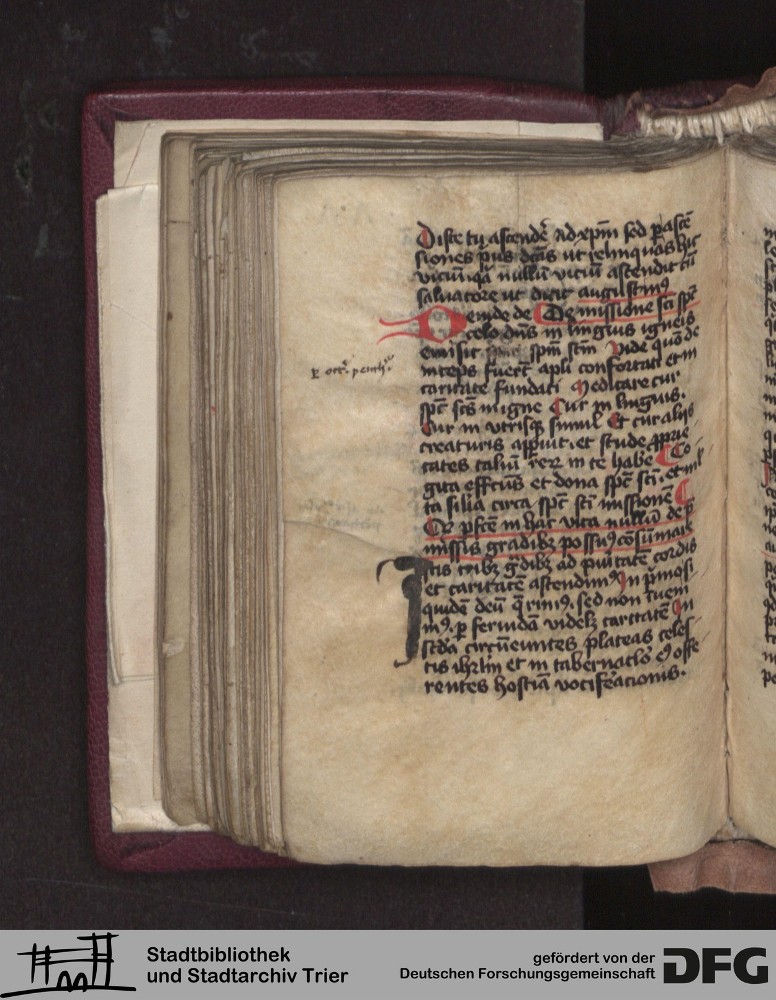 Disce tu ascendē ad xpm̄ sed p ascē
siones prius dc̄as ut relinquas hic
vicium qa nullū viciū ascendit cū
saluatore ut dicit augustinus
Deinde de De missione sc̄i sp̄c
celo dn̄s in linguis igneis
emisit spm̄ scm̄ vide quō de
inceps fuerūt apl̄i confortati et in
caritate fundati Meditare cur
sp̄c sc̄s in igne Cur in linguis.
Cur in vtrisq simul Et cur alijs
creaturis appuit. et stude ꝓprie
tates taliū rerū in te habē Co
gita effectus et dona sp̄c sc̄i. et mul
ta silia circa sp̄c sc̄i missionē
Qr post in hac vita nullū de p
missis gradibꝫ possumꝰ cōsūmare
Istis tribꝫ gdibꝫ ad puritatē cordis
et caritatē ascendimꝰ In primo si
quidē deū q̄rimꝰ. sed non inueni
mꝰ. p feruidā videlꝫ caritatē In
sc̄do circūeuntes plateas celes
tis ihrlm et in tabernaclo eiꝰ offe
rentes hostiā vociferacionis.
Stadtbibliothek
und Stadtarchiv Trier
gefördert von der
Deutschen Forschungsgemeinschaft
DFG